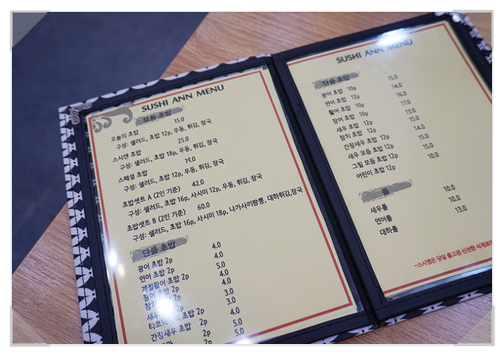 SUSHI ANN MENU
모듬 초밥
오늘의 초밥 15.0
구성: 샐러드, 초밥 12p, 우동, 튀김, 장국
스시앤 초밥 25.0
구성: 샐러드, 초밥 18p, 우동, 튀김, 장국
스페셜 초밥 19.0
구성: 샐러드, 초밥 12p, 우동, 튀김, 장국
초밥셋트 A (2인 기준) 42.0
구성: 샐러드, 초밥 16p, 사시미 12p, 우동, 튀김, 장국
초밥셋트 B (2인 기준) 60.0
구성: 샐러드, 초밥 16p, 사시미 18p, 나가사끼짬뽕, 대하튀김,장국
단품 초밥
광어 초밥 2p 4.0
연어 초밥 2p 4.0
계절활어 초밥 2p 4.0
장어 초밥 2p 4.0
참치 초밥 2p 3.0
새우 초밥 2p 3.0
2p 4.0
간장새우 초밥 2p 5.0
2p 5.0
SUSHI ANN MENU
단품 초밥
광어 초밥 10p 15.0
연어 초밥 12p 14.0
활어 초밥 10p 16.0
장어 초밥 12p 17.0
새우 초밥 12p 13.0
참치 초밥 12p 14.0
간장새우 초밥 12p 15.0
새우 모듬 초밥 12p 15.0
그릴 모듬 초밥 12p 15.0
어린이 초밥 12p 10.0
롤
새우롤 10.0
연어롤 10.0
대하롤 13.0
*스시앤은 당일 출고된 신선한